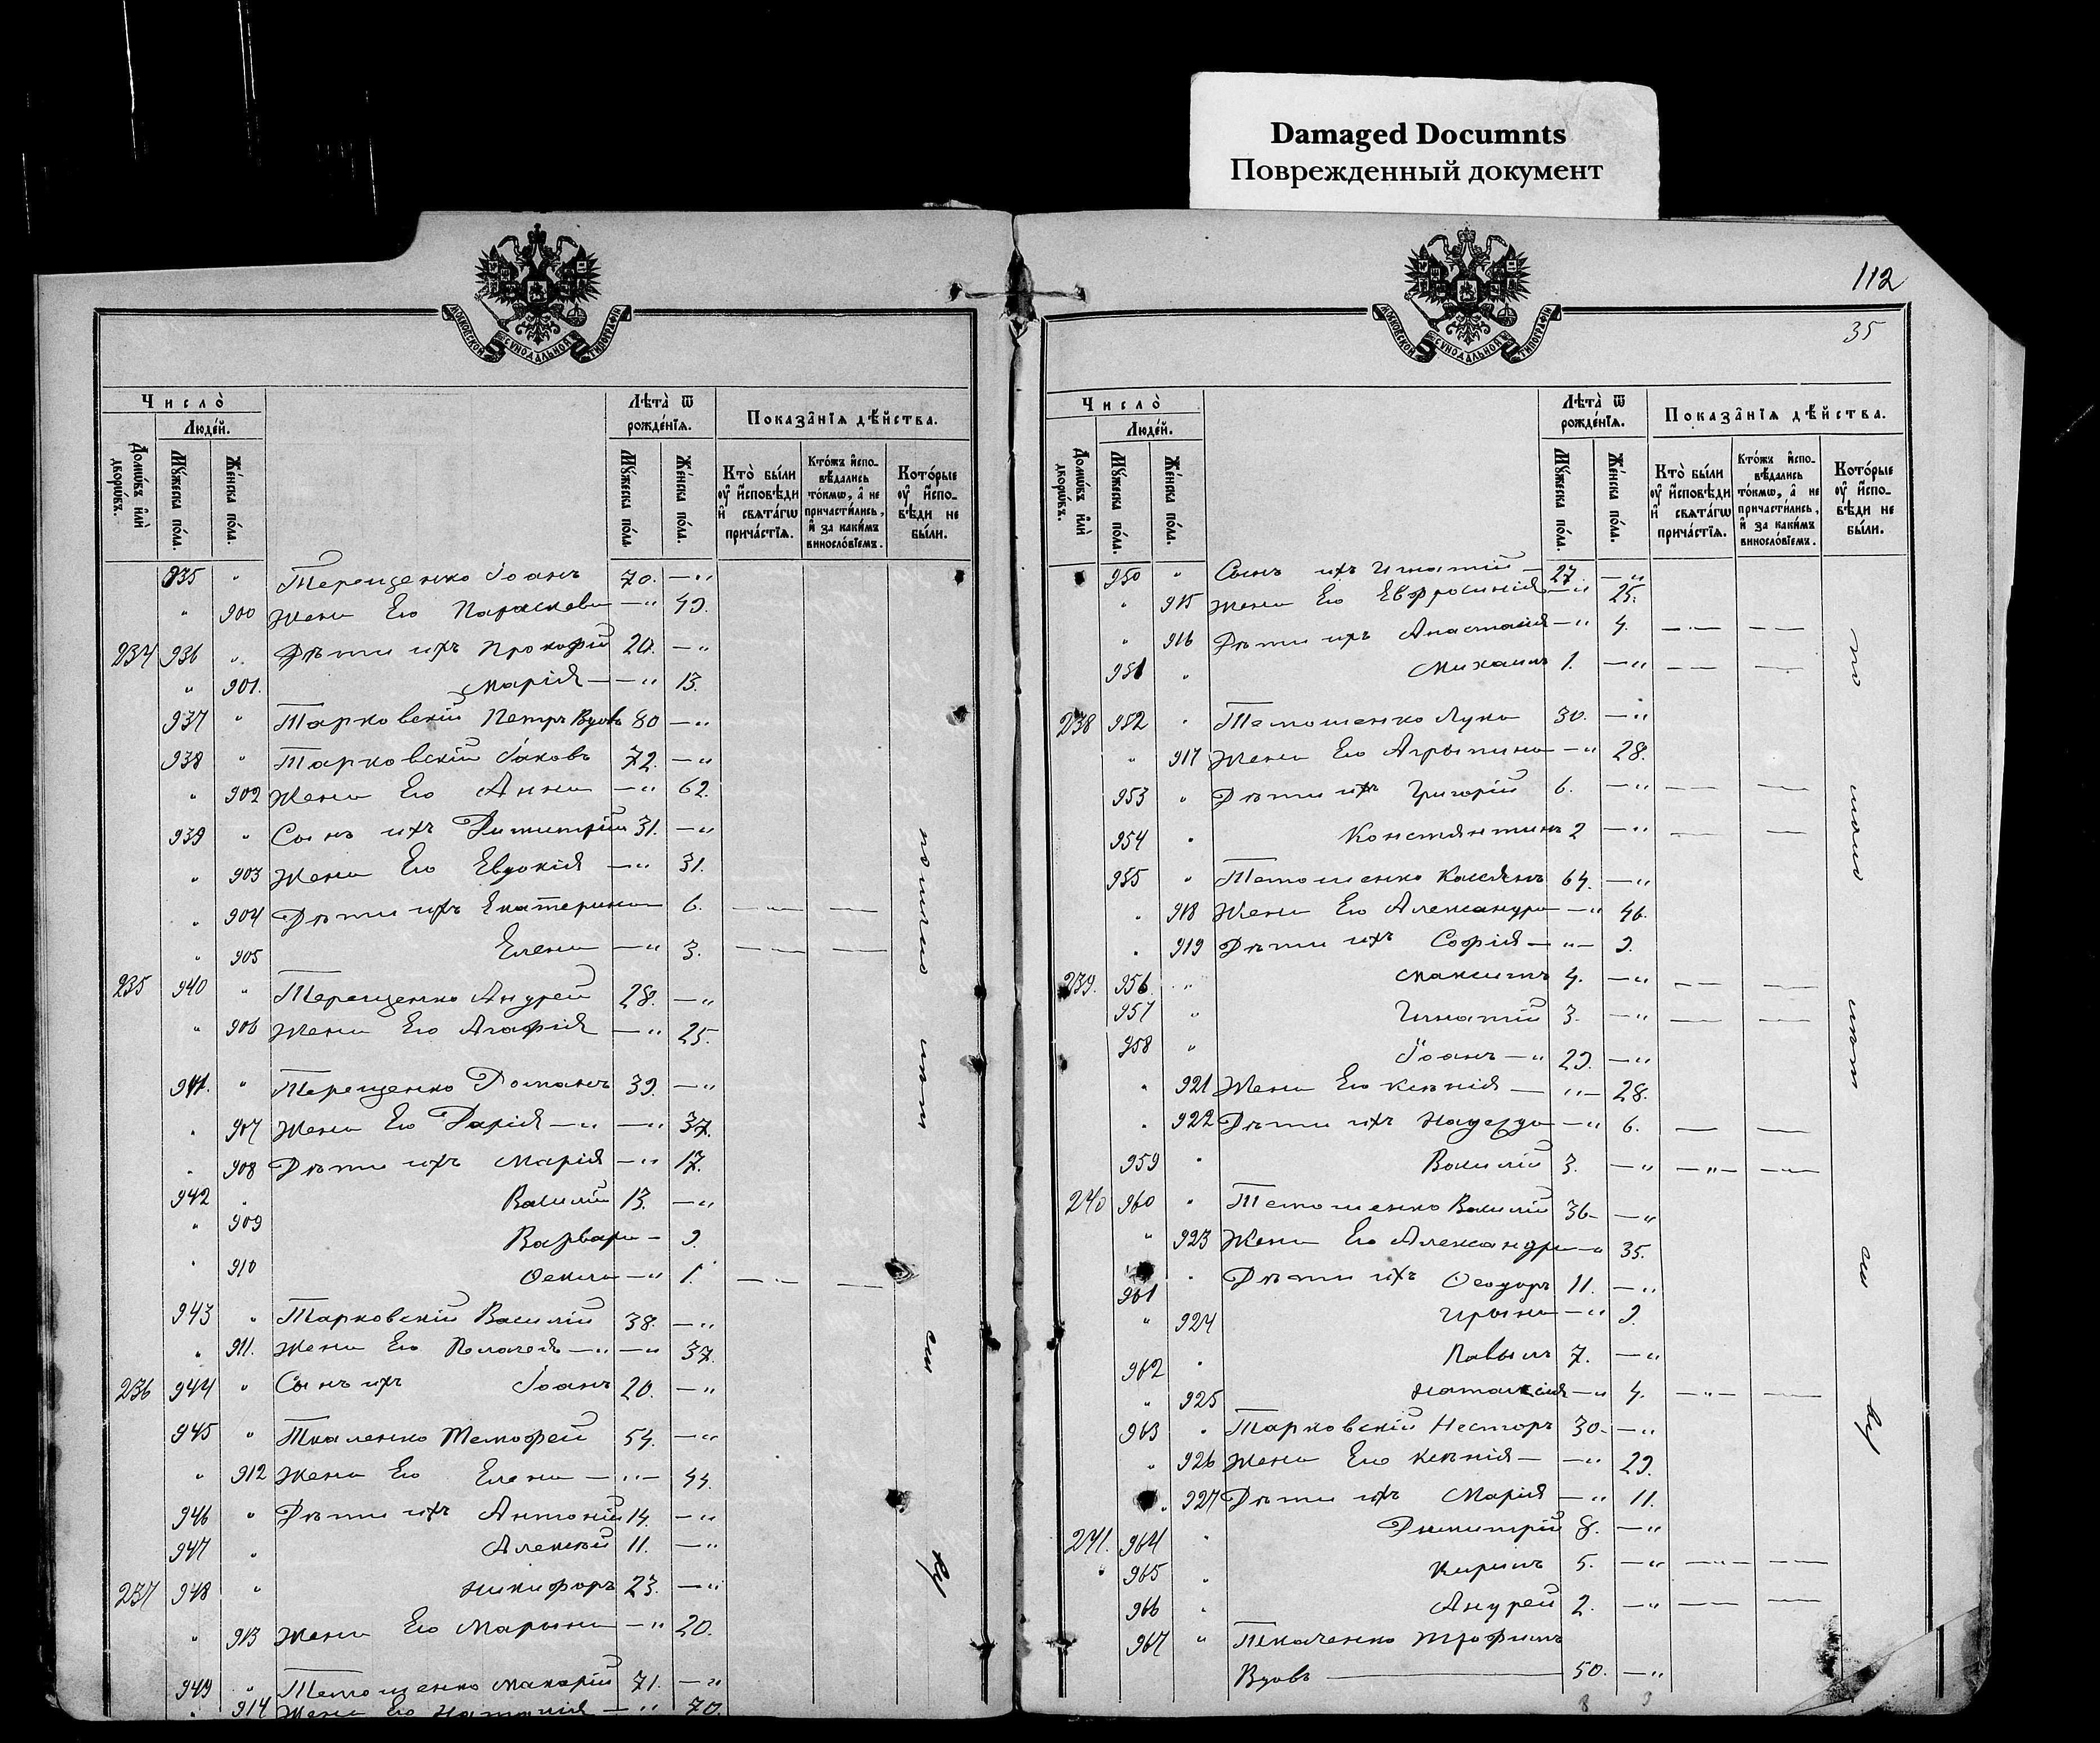 Damaged Documnts
Поврежденный документ
112
35
МОСКОВСКОЙ СѴНОДАЛЬНОЙ ТИПОГРАФІИ
Число̀
Людéй.
Домѡ́въ и҆лѝ дворѡ́въ.
Мꙋ́жеска по́ла.
Же́нска по́ла.
Лѣ́та ѿ рожде́нїѧ.
Мꙋ́жеска по́ла.
Же́нска по́ла.
Показа̑нїѧ дѣ́йства.
Кто̀ бы́ли ᲂу҆ и҆сповѣ́ди и҆ свѧта́гѡ прича́стїѧ.
Кто́жъ и҆сповѣ́дались то́кмѡ, а҆ не причасти́лись, и҆ за каки́мъ винословїемъ.
Кото́рые ᲂу҆ и҆сповѣ́ди не бы́ли.
935 " Терещенко Іоанъ 70. — "
" 900 Жена Его Параскева — " 49.
234 936 " Дѣти ихъ Прокофій 20. — "
" 901. Марія — — " 13.
937 " Тарковскій Петръ Вдовъ 80 — "
938 " Тарковскій Іаковъ 72. — "
" 902 Жена Его Анна — " 62.
939 " Сынъ ихъ Димитрій 31. — "
" 903 Жена Его Евдокія — " 31.
" 904 Дѣти ихъ Екатерина — 6. — —
" 905 Елена — " 3. — —
235 940 " Терещенко Андрей 28. — "
" 906 Жена Его Агафія — " 25.
941. " Терещенко Романъ 39. — "
" 907 Жена Его Дарія — " — " 37.
" 908 Дѣти ихъ Марія — " 17.
942 " Василій 13. — "
" 909 Варвара — 9.
" 910 Ѳекла — " 1. — —
943 " Тарковскій Василій 38. — "
" 911. Жена Его Пелагея — " — " 37.
236 944 " Сынъ ихъ Іоанъ 20. — "
945 " Ткаленко Темофей 54. — "
" 912 Жена Его Елена — " — 44.
946 " Дѣти ихъ Антоній 14. — "
947 " Алексѣй 11. — "
237 948 " Никифоръ 23. — "
" 913 Жена Его Марына — " 20.
949 " Тетошенко Макарій 71. — "
" 914 Жена Его Наталія — " 70.
МОСКОВСКОЙ СѴНОДАЛЬНОЙ ТИПОГРАФІИ
Число̀
Людéй.
Домѡ́въ и҆лѝ дворѡ́въ.
Мꙋ́жеска по́ла.
Же́нска по́ла.
Лѣ́та ѿ рожде́нїѧ.
Мꙋ́жеска по́ла.
Же́нска по́ла.
Показа̑нїѧ дѣ́йства.
Кто̀ бы́ли ᲂу҆ и҆сповѣ́ди и҆ свѧта́гѡ прича́стїѧ.
Кто́жъ и҆сповѣ́дались то́кмѡ, а҆ не причасти́лись, и҆ за каки́мъ винословїемъ.
Кото́рые ᲂу҆ и҆сповѣ́ди не бы́ли.
950 " Сынъ ихъ Игнатій — 27 — "
" 915 Жена Его Евфросинія — " 25.
" 916 Дѣти ихъ Анастасія — " 4. — —
951 " Михаилъ 1. — " — —
238 952 " Тетошенко Лука 30. — "
" 917 Жена Его Агрыпина — " 28.
953 " Дѣти ихъ Григорій 6. — " — —
954 " Константинъ 2 — " — —
955 " Тетошенко Касіянъ 64. — "
" 918 Жена Его Александра — " 46.
" 919 Дѣти ихъ Софія — " — 9.
239. 956. " Максимъ 4. — " — —
957 " Игнатій 3. — " — —
958 " Іоанъ — " 29. — "
" 921 Жена Его Ксенія — " — 28.
" 922 Дѣти ихъ Надежда — " 6. — —
959 " Василій 3. — " — " — —
240 960 " Тетошенко Василій 36 — "
" 923 Жена Его Александра — " 35.
961 " Дѣти ихъ Ѳеодоръ 11. — "
" 924 Ирына — " 9.
962 " Павылъ 7. — "
" 925 Наталія — " 4. — " — —
963 " Тарковскій Несторъ 30. — "
" 926 Жена Его Ксенія — — " 29.
" 927 Дѣти ихъ Марія — " 11.
241. 964 " Димитрій 8. — "
" 965 " Кирилъ 5. — " — —
966 " Андрей 2. — " — —
967 " Ткаченко Трофимъ
Вдовъ — 50. — "
8 9